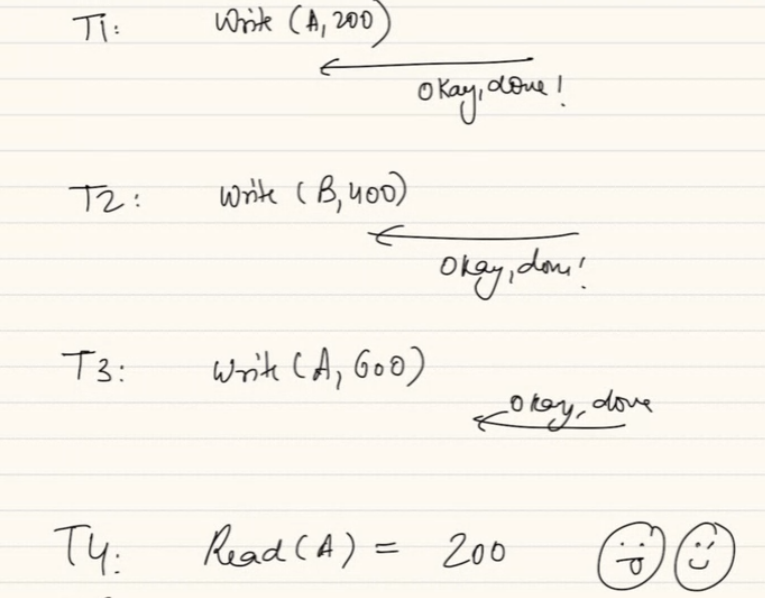 T1: Write (A, 200)
Okay, done!
T2: Write (B, 400)
Okay, done!
T3: Write (A, 600)
Okay, done
T4: Read (A) = 200